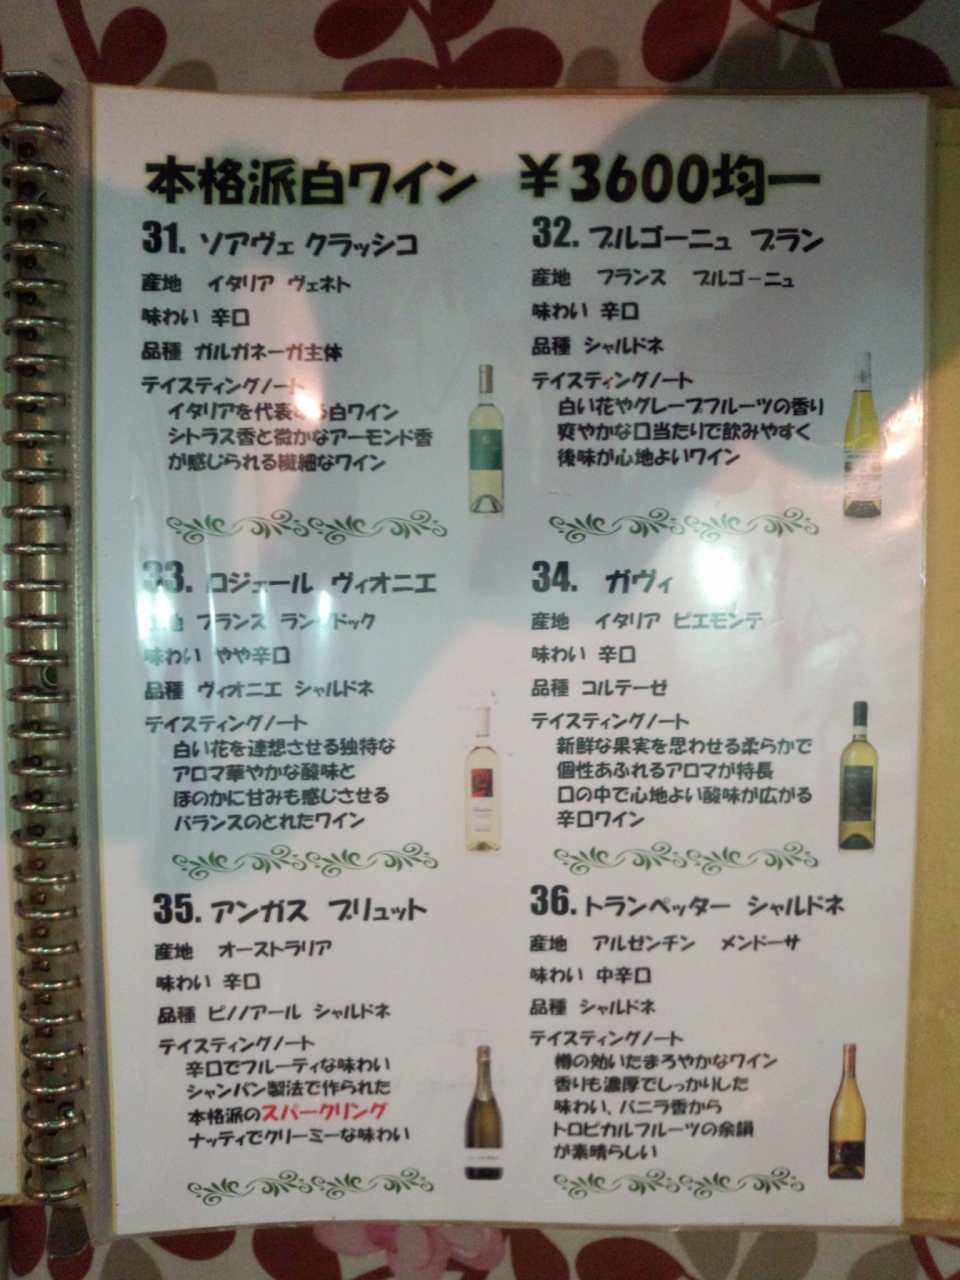 本格派白ワイン ￥3600均一
31. ソアヴェ クラッシコ
産地 イタリア ヴェネト
味わい 辛口
品種 ガルガネーガ主体
テイスティングノート
イタリアを代表する白ワイン
シトラス香と微かなアーモンド香
が感じられる繊細なワイン
32. ブルゴーニュ ブラン
産地 フランス ブルゴーニュ
味わい 辛口
品種 シャルドネ
テイスティングノート
白い花やグレープフルーツの香り
爽やかな口当たりで飲みやすく
後味が心地よいワイン
33. ロジェール ヴィオニエ
産地 フランス ラングドック
味わい やや辛口
品種 ヴィオニエ シャルドネ
テイスティングノート
白い花を連想させる独特な
アロマ華やかな酸味と
ほのかに甘みも感じさせる
バランスのとれたワイン
34. ガヴィ
産地 イタリア ピエモンテ
味わい 辛口
品種 コルテーゼ
テイスティングノート
新鮮な果実を思わせる柔らかで
個性あふれるアロマが特長
口の中で心地よい酸味が広がる
辛口ワイン
35. アンガス ブリュット
産地 オーストラリア
味わい 辛口
品種 ピノノアール シャルドネ
テイスティングノート
辛口でフルーティな味わい
シャンパン製法で作られた
本格派のスパークリング
ナッティでクリーミーな味わい
36. トランペッター シャルドネ
産地 アルゼンチン メンドーサ
味わい 中辛口
品種 シャルドネ
テイスティングノート
樽の効いたまろやかなワイン
香りも濃厚でしっかりした
味わい、バニラ香から
トロピカルフルーツの余韻
が素晴らしい